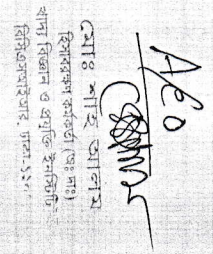 A/C 0
মোঃ শাহ আলম
হিসাবরক্ষণ কর্মকর্তা (চঃ দাঃ)
খাদ্য বিজ্ঞান ও প্রযুক্তি ইনস্টিটিউট
বিসিএসআইআর, ঢাকা-১২০৫